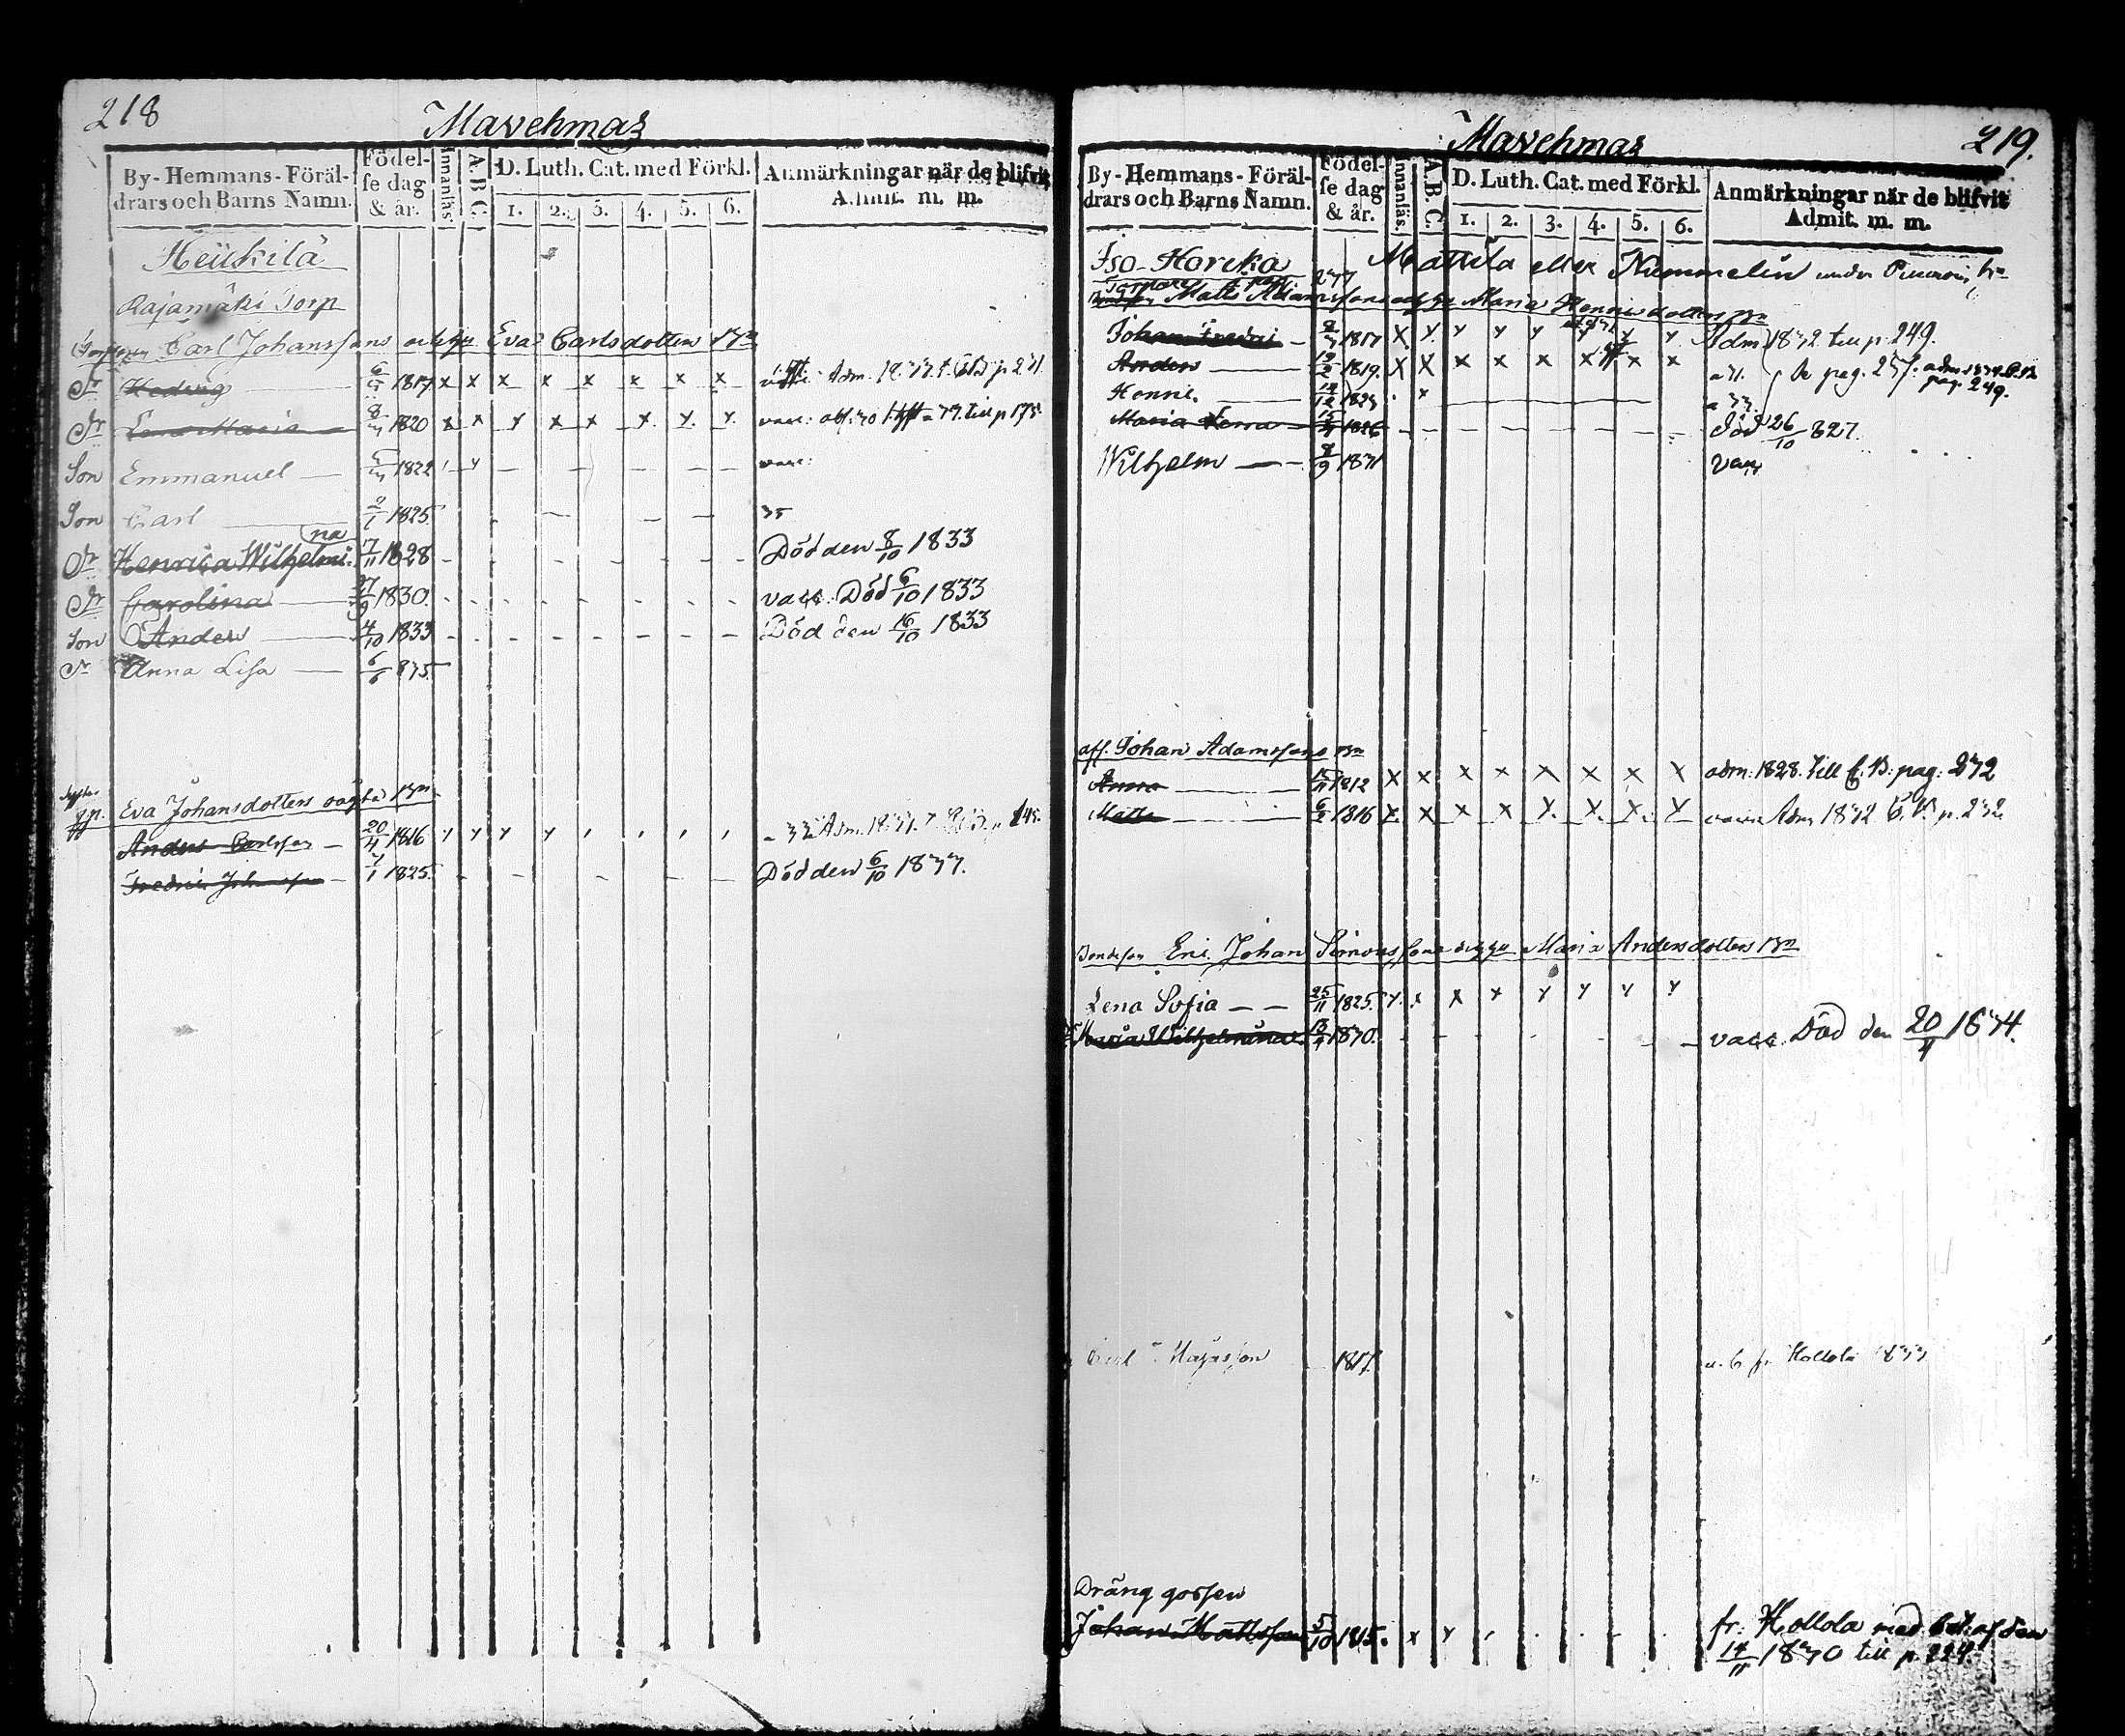 218
Mavehmaa
By-Hemmans-Föräl-
drars och Barns Namn.
Födel-
se dag
& år.
Innanläs.
A. B. C.
D. Luth. Cat. med Förkl.
1. 2. 3. 4. 5. 6.
Anmärkningar när de blifvit
Admit. m. m.
Heickilä
Rajamäki Torp
Carl Johanssons och hu Eva Carlsdotters Bn
Dr Hedvig 1817 x x x x x x x x Adm.
Dr Lena Maria 8 1820 x x y x x x y. y. vacc: till p 175
Son Emmanuel 1822 vacc:
Son Carl 2/1 1825 35
Dr Henrica Wilhelmi-
na 7/11 1828 Död den 8/10 1833
Dr Carolina 27/9 1830. vacc. Död 6/10 1833
Son Anders 4/10 1833 Död den 16/10 1833
Dr Anna Lisa 6/6 835
Eva Johansdotters oägta Bn
Anders Carlsson 20/4 1816 y y y y 145.
Fredric Johansson 7/1 1825. Död den 6/10 1833.
219.
Mavehmaa
By-Hemmans-Föräl-
drars och Barns Namn.
Födel-
se dag
& år.
Innanläs.
A. B. C.
D. Luth. Cat. med Förkl.
1. 2. 3. 4. 5. 6.
Anmärkningar när de blifvit
Admit. m. m.
Iso-Horcka Mattila eller Nummelin under
Matts Adamssons Maria Henricsdotters Bn
Johan Fredric 1817 x y. y y y y Adm 1832 till p. 249.
Anders 19/2 1819. x x x x x x x x pag. 249.
Henric. 12/12 1823
Maria Lena 15 1826 Död 26/10 827.
Wilhelm 8/9 1831 vacc
aff. Johan Adamssons Bn
Anna 15/11 1812 x x x x x x x x adm: 1828. till C. B: pag: 232
Matts 6/2 1816 x. x x x y. x. x. y vacc: Adm 1832 C. B. p. 232
Bondeson Eric Johan Simonssons och hu Maria Andersdotters Bn
Lena Sofia 25/11 1825. y. x x x y y y y
Maria Wilhelmina 13 1830. vacc. Död den 20/4 1834.
Carl Majasson 1817. fr Hollola 1833
Dräng gossen
Johan Mattsson 5/10 1815. x y fr: Hollola med bet: af den
14/11 1830 till p. 224.